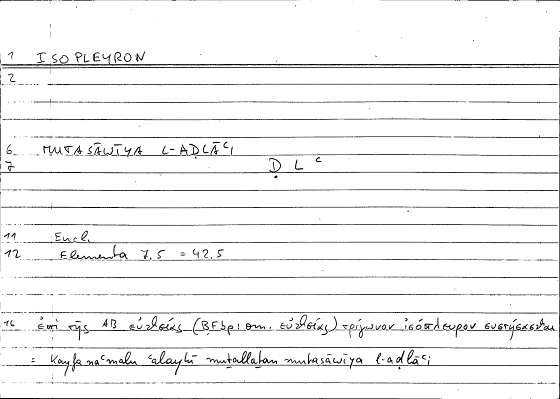 1 ISOPLEYRON
2
6 MUTASĀWĪYA L-AḌLĀʿI
7 Ḍ L ʿ
11 Eucl.
12 Elementa 7.5 = 42.5
16 ἐπὶ τῆς AB εὐθείας (BFbp: om. εὐθείας) τρίγωνον ἰσόπλευρον συστήσασθαι
= Kayfa naʿmalu ʿalayhi muṯallaṯan mutasāwiya l-aḍlāʿi